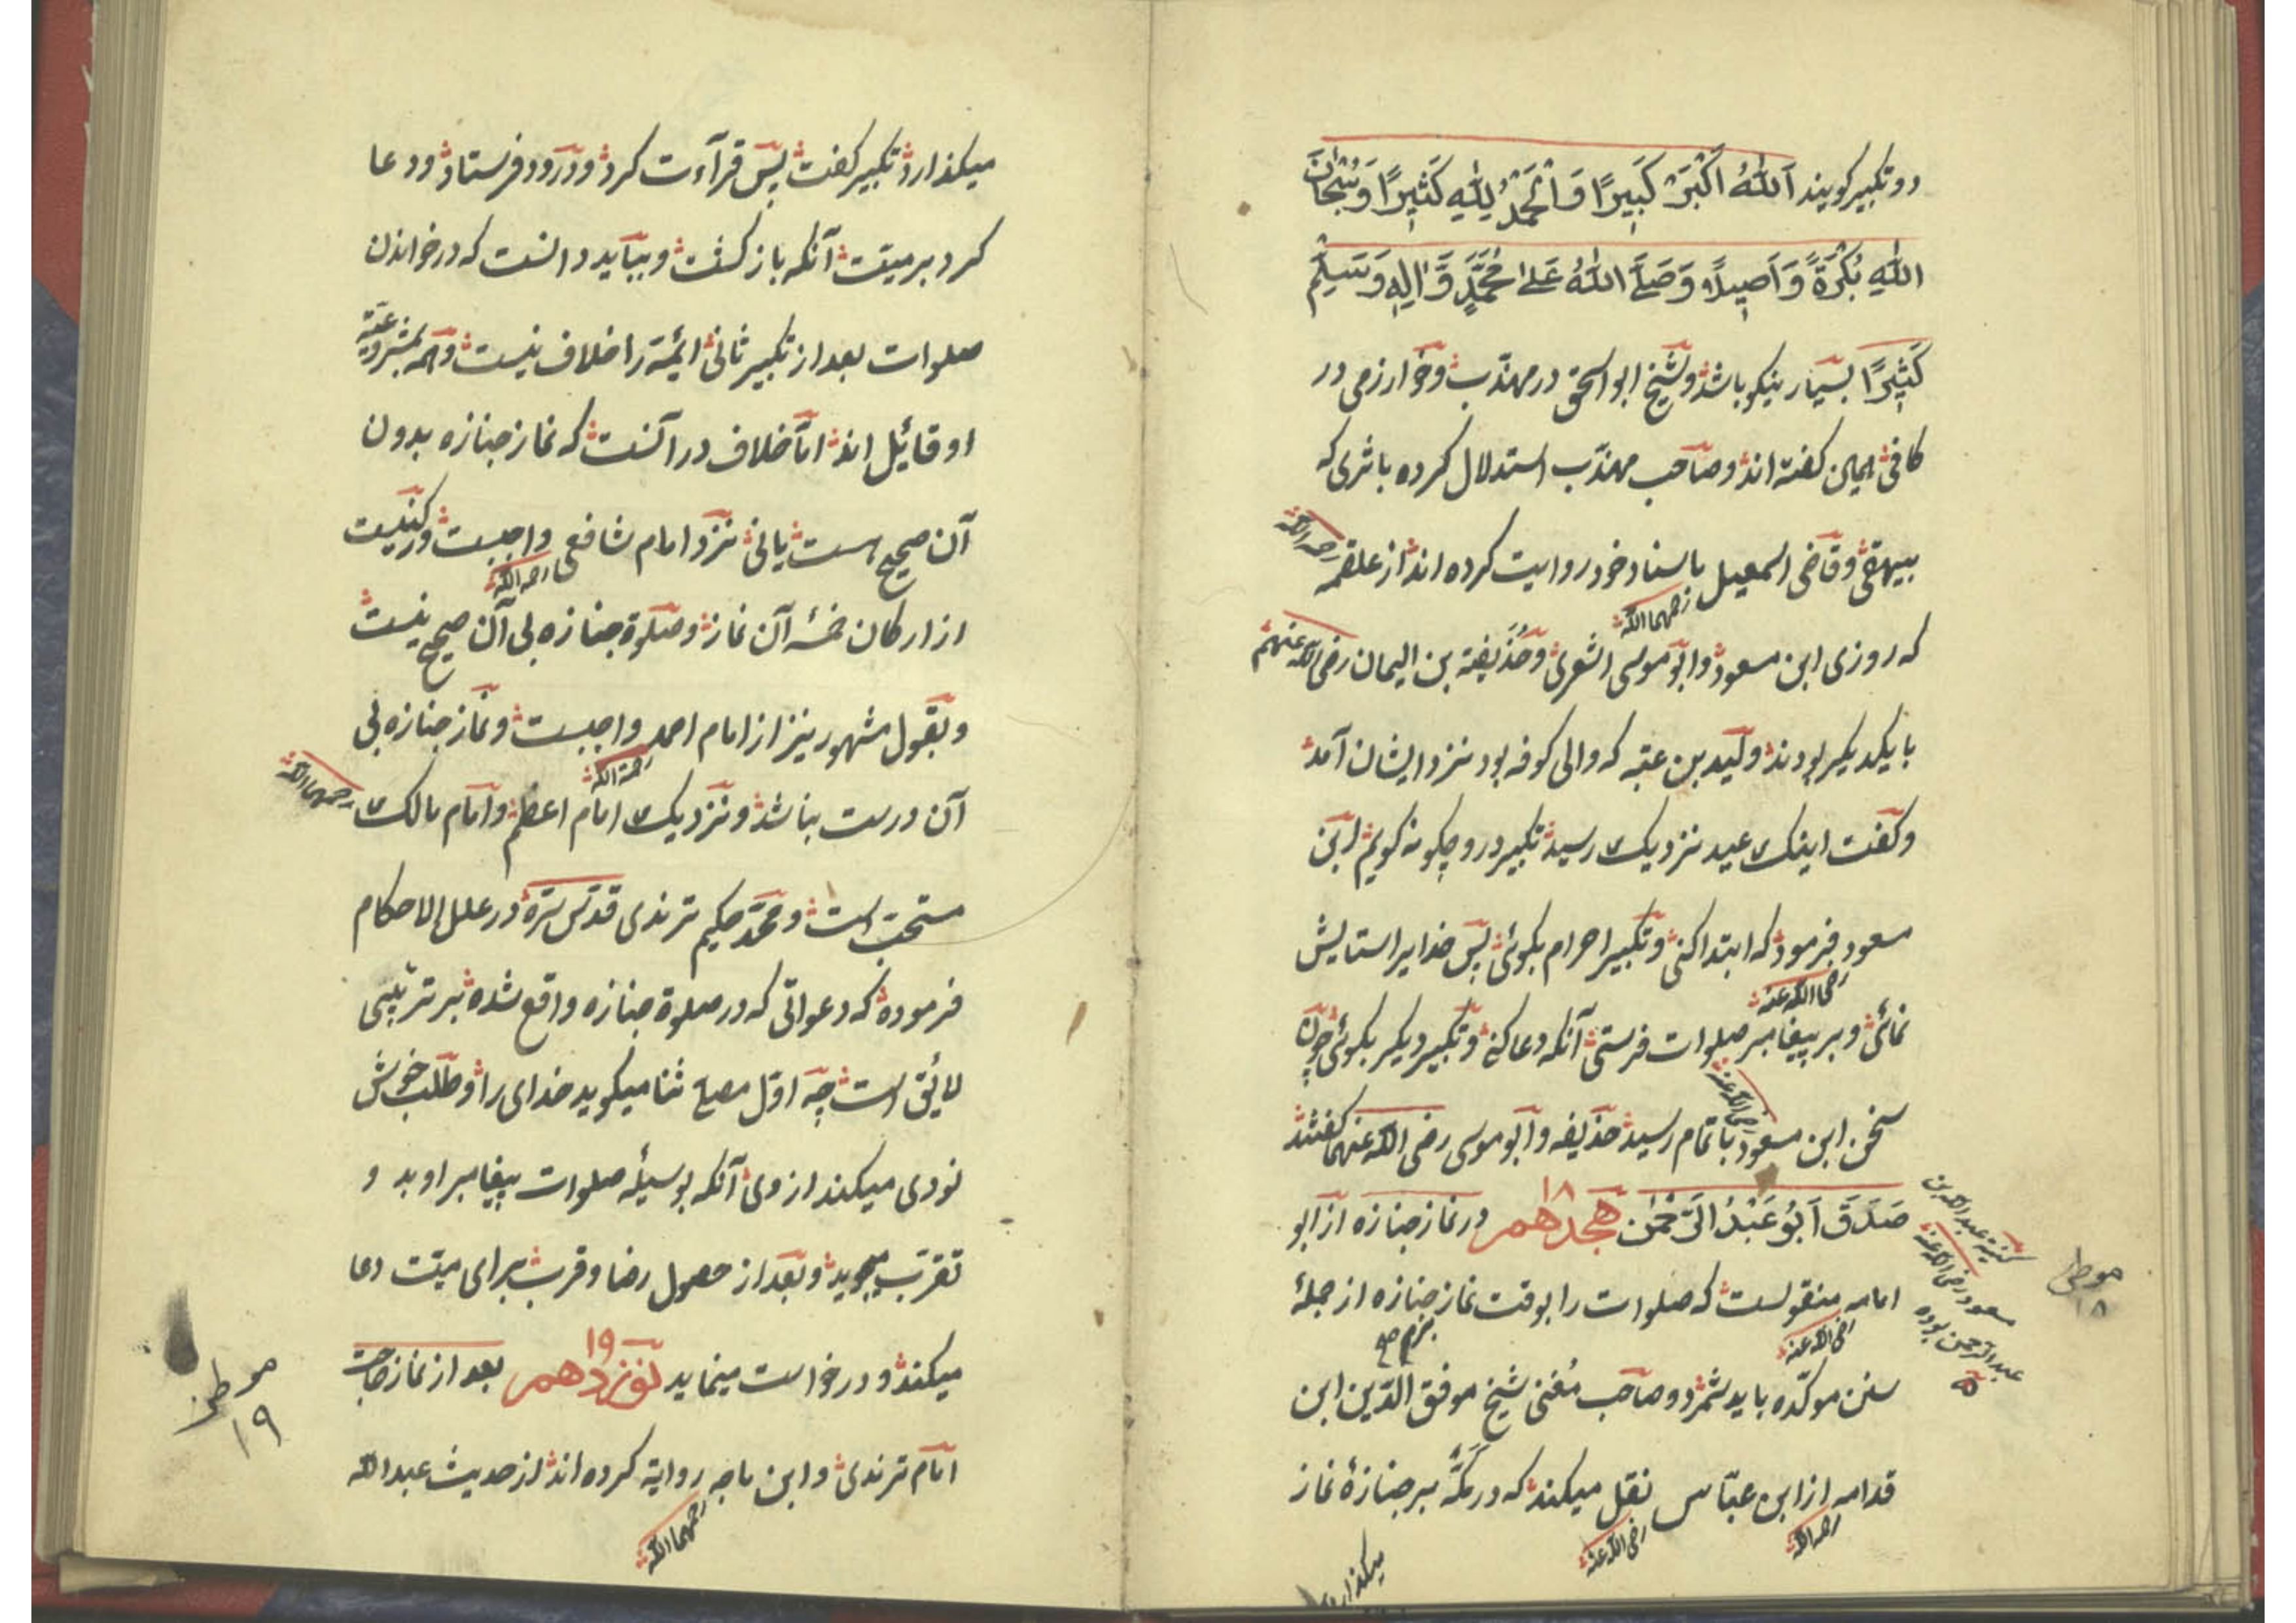 دو تکبیر کویند اَللّٰهُ اَکْبَرُ کَبِیرًا وَالْحَمْدُ لِلّٰهِ کَثِیرًا وَسُبْحَانَ
اللّٰهِ بُکْرَةً وَاَصِیلًا وَصَلَّی اللّٰهُ عَلیٰ مُحَمَّدٍ وَّاٰلِهٖ وَسَلَّمَ
کَثِیرًا بسیار نیکو باشد و شیخ ابو اسحق در مهذّب و خوارزمی در
کافی همین کفته اند و صاحب مهذّب استدلال کرده باثری که
بیهقی و قاضی اسمعیل باسناد خود روایت کرده اند از علقمه رحمه الله
رحمهما الله
که روزی ابن مسعود و ابو موسی اشعری و حُذَیفة بن الیمان رضی الله عنهم
با یکدیکر بودند ولید بن عقبه که والی کوفه بود نزد ایشان آمد
و کفت اینک عید نزدیک رسید تکبیر درو چکونه کویم ابن
مسعود فرمود که ابتدا کنی و تکبیر احرام بکوئی پس خدایرا ستایش
رضی الله عنه
نمائی و بر پیغامبر صلوات فرستی آنکه دعا کنی و تکبیر دیکر بکوئی چون
رضی الله عنه
سخن ابن مسعود باتمام رسید حذیفه و ابو موسی رضی الله عنهما کفتند
صَدَقَ اَبُو عَبْدُ الرَّحْمٰن هجدهم ۱۸ در نماز جنازه از ابو
امامه منقولست که صلوات را بوقت نماز جنازه از جملهٔ
رضی الله عنه
سنن موکّده باید شمرد و صاحب مُغنی شیخ موفق الدّین ابن
قدامه از ابن عبّاس نقل میکند که در مَکّه بر جنازهٔ نماز
رحمه الله رضی الله عنه
میکذارد
کنیة عبد الله بن
مسعود رضی الله عنه
عبد الرحمن بوده
موطن
۱۸
میکذارد تکبیر کفت پس قرآءت کرد و درود فرستاد و دعا
کرد بر میّت آنکه باز کشت و بباید دانست که در خواندن
صلوات بعد از تکبیر ثانی ائمّة را خلاف نیست و همه بمشروعیّة
او قائل اند امّا خلاف در آنست که نماز جنازه بدون
آن صحیح هست یا نی نزد امام شافعی واجبست و رکنیست
رحمه الله
از ارکان خمسهٔ آن نماز و صلوة جنازه بی آن صحیح نیست
و بقول مشهور نیز از امام احمد واجبست و نماز جنازه بی
رحمة الله
آن درست نباشد و نزدیک امام اعظم و امام مالک رحمهما الله
مستحبّ است و محمّد حکیم ترمذی قدّس سرّه در علل الاحکام
فرموده که دعواتی که در صلوة جنازه واقع شده بر ترتیبی
لایق است چه اوّل مصلی ثنا میکوید خدای را و طلب خوش
نودی میکند از وی آنکه بوسیلهٔ صلوات پیغامبر او بد و
تقرّب میجوید و بعد از حصول رضا و قرب برای میّت دعا
میکند و درخواست مینماید نوزدهم ۱۹ بعد از نماز حاجت
امام ترمذی و ابن ماجه روایة کرده اند از حدیث عبد الله
رحمهما الله
موطن
۱۹